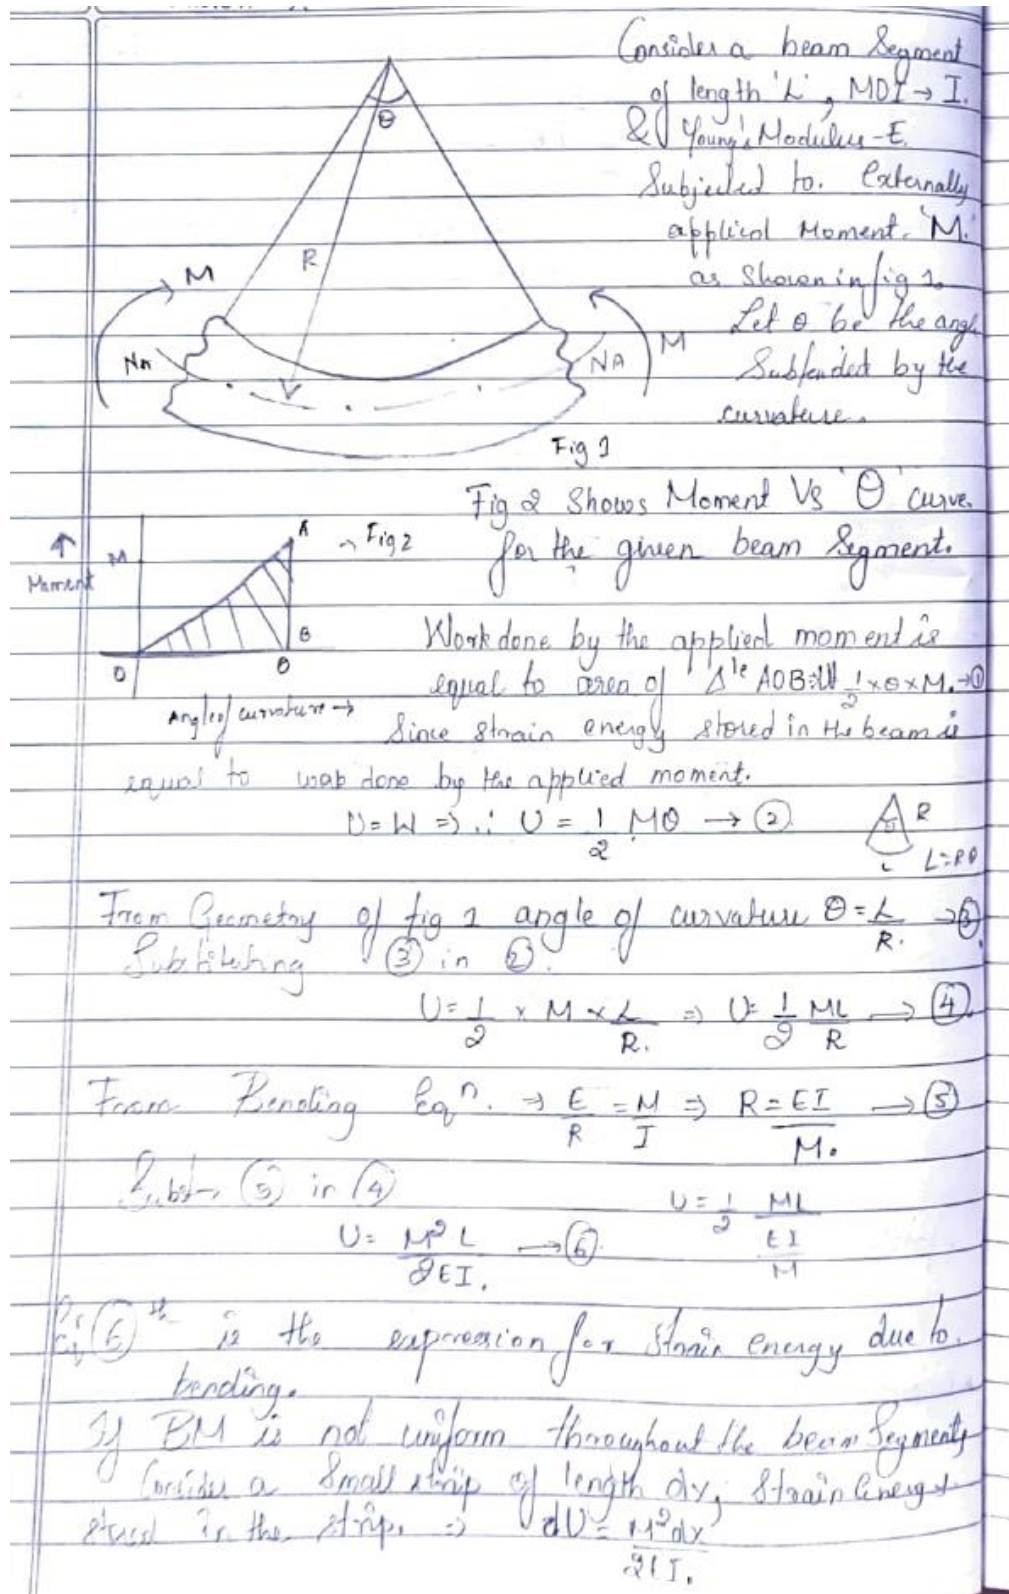 Consider a beam Segment
of length 'L', MOI → I.
& Young's Modulus - E.
Subjected to. Externally
applied Moment. 'M.'
as Shown in fig 1.
Let θ be the angle
Subtended by the
curvature.
θ
R
M
M
NA
NA
Fig 1
Fig 2 Shows Moment Vs 'θ' curve.
for the given beam Segment.
Fig 2
A
M
Moment
B
O
θ
Angle of curvature →
Work done by the applied moment is
equal to area of Δle AOB: W 1/2 × θ × M. → ①
Since strain energy stored in the beam is
equal to done by the applied moment.
U = W ⇒ ∴ U = 1/2 Mθ → ②
R
L
L = Rθ
From Geometry of fig 1 angle of curvature θ = L/R. → ③
Substituting ③ in ②.
U = 1/2 × M × L/R. ⇒ U = 1/2 ML/R → ④
From Bending Eqn. ⇒ E/R = M/I ⇒ R = EI/M. → ⑤
Subst, ⑤ in ④
U = 1/2 ML/(EI/M)
U = M²L/2EI. → ⑥
Eq ⑥ is the expression for Strain energy due to
bending.
If BM is not uniform throughout the beam Segment,
Consider a Small strip of length dx, Strain Energy
stored in the strip. ⇒ dU = M²dx/2EI.